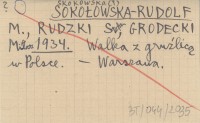 ?
SKOKOWSKA (?)
SOKOŁOWSKA-RUDOLF
M., RUDZKI GRODECKI
1934. Walka z gruźlicą
w Polsce. — Warszawa.